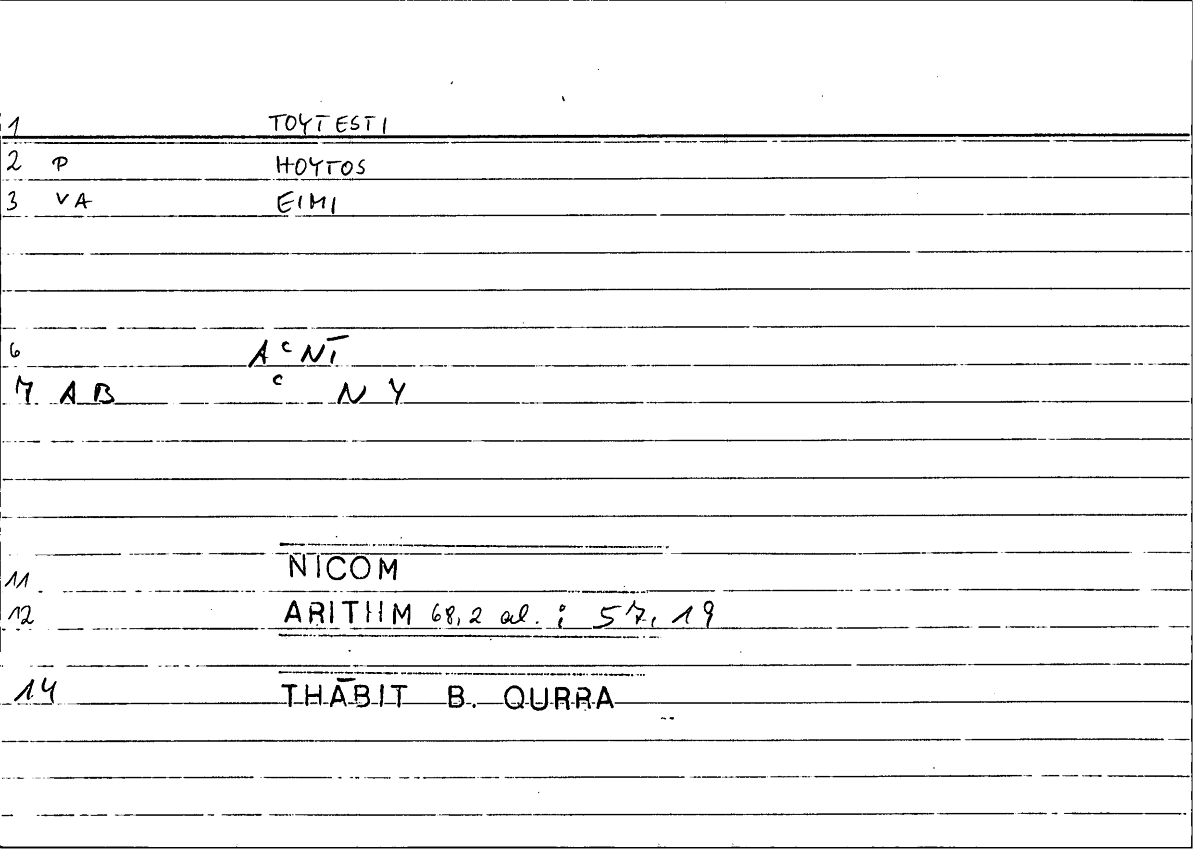 1 TOYTESTI
2 P HOYTOS
3 VA EIMI
6 AᶜNĪ
7 AB ᶜ N Y
11 NICOM
12 ARITHM 68,2 al. ; 57, 19
14 THĀBIT B. QURRA